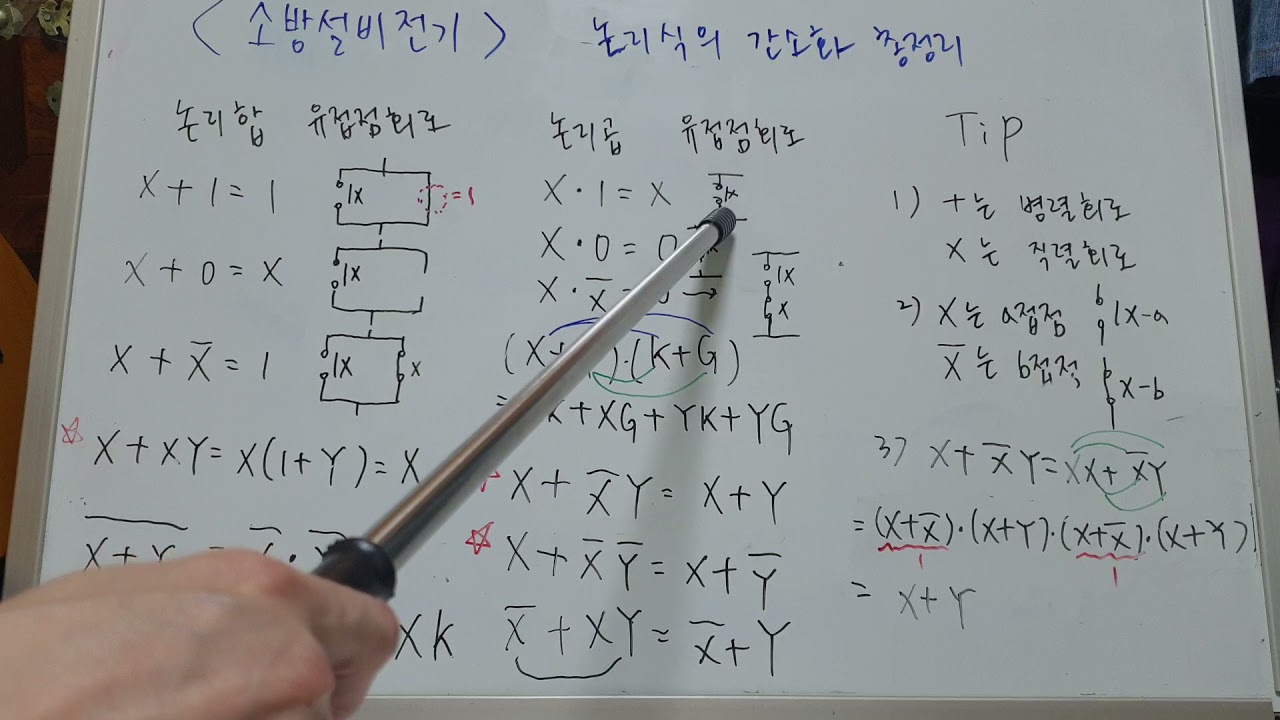 <소방설비전기> 논리식의 간소화 총정리
논리합 유접점회로
X + 1 = 1
1X
= 1
X + 0 = X
1X
X + X̅ = 1
1X
X
☆ X + XY = X(1+Y) = X
X̅·
XK
논리곱 유접점회로
X · 1 = X
1X
X · 0 = 0
X
X · X̅ = 0 →
1X
X
(X+ )·(K+G)
= K+XG+YK+YG
X + X̅Y = X + Y
☆ X + X̅Y̅ = X + Y̅
X̅ + XY = X̅ + Y
Tip
1) +는 병렬회로
X는 직렬회로
2) X는 a접점 1X-a
X̅는 b접적 X-b
3) X + X̅Y = XX + X̅Y
= (X+X̅)·(X+Y)·(X+X̅)·(X+Y)
1 1
= X+Y